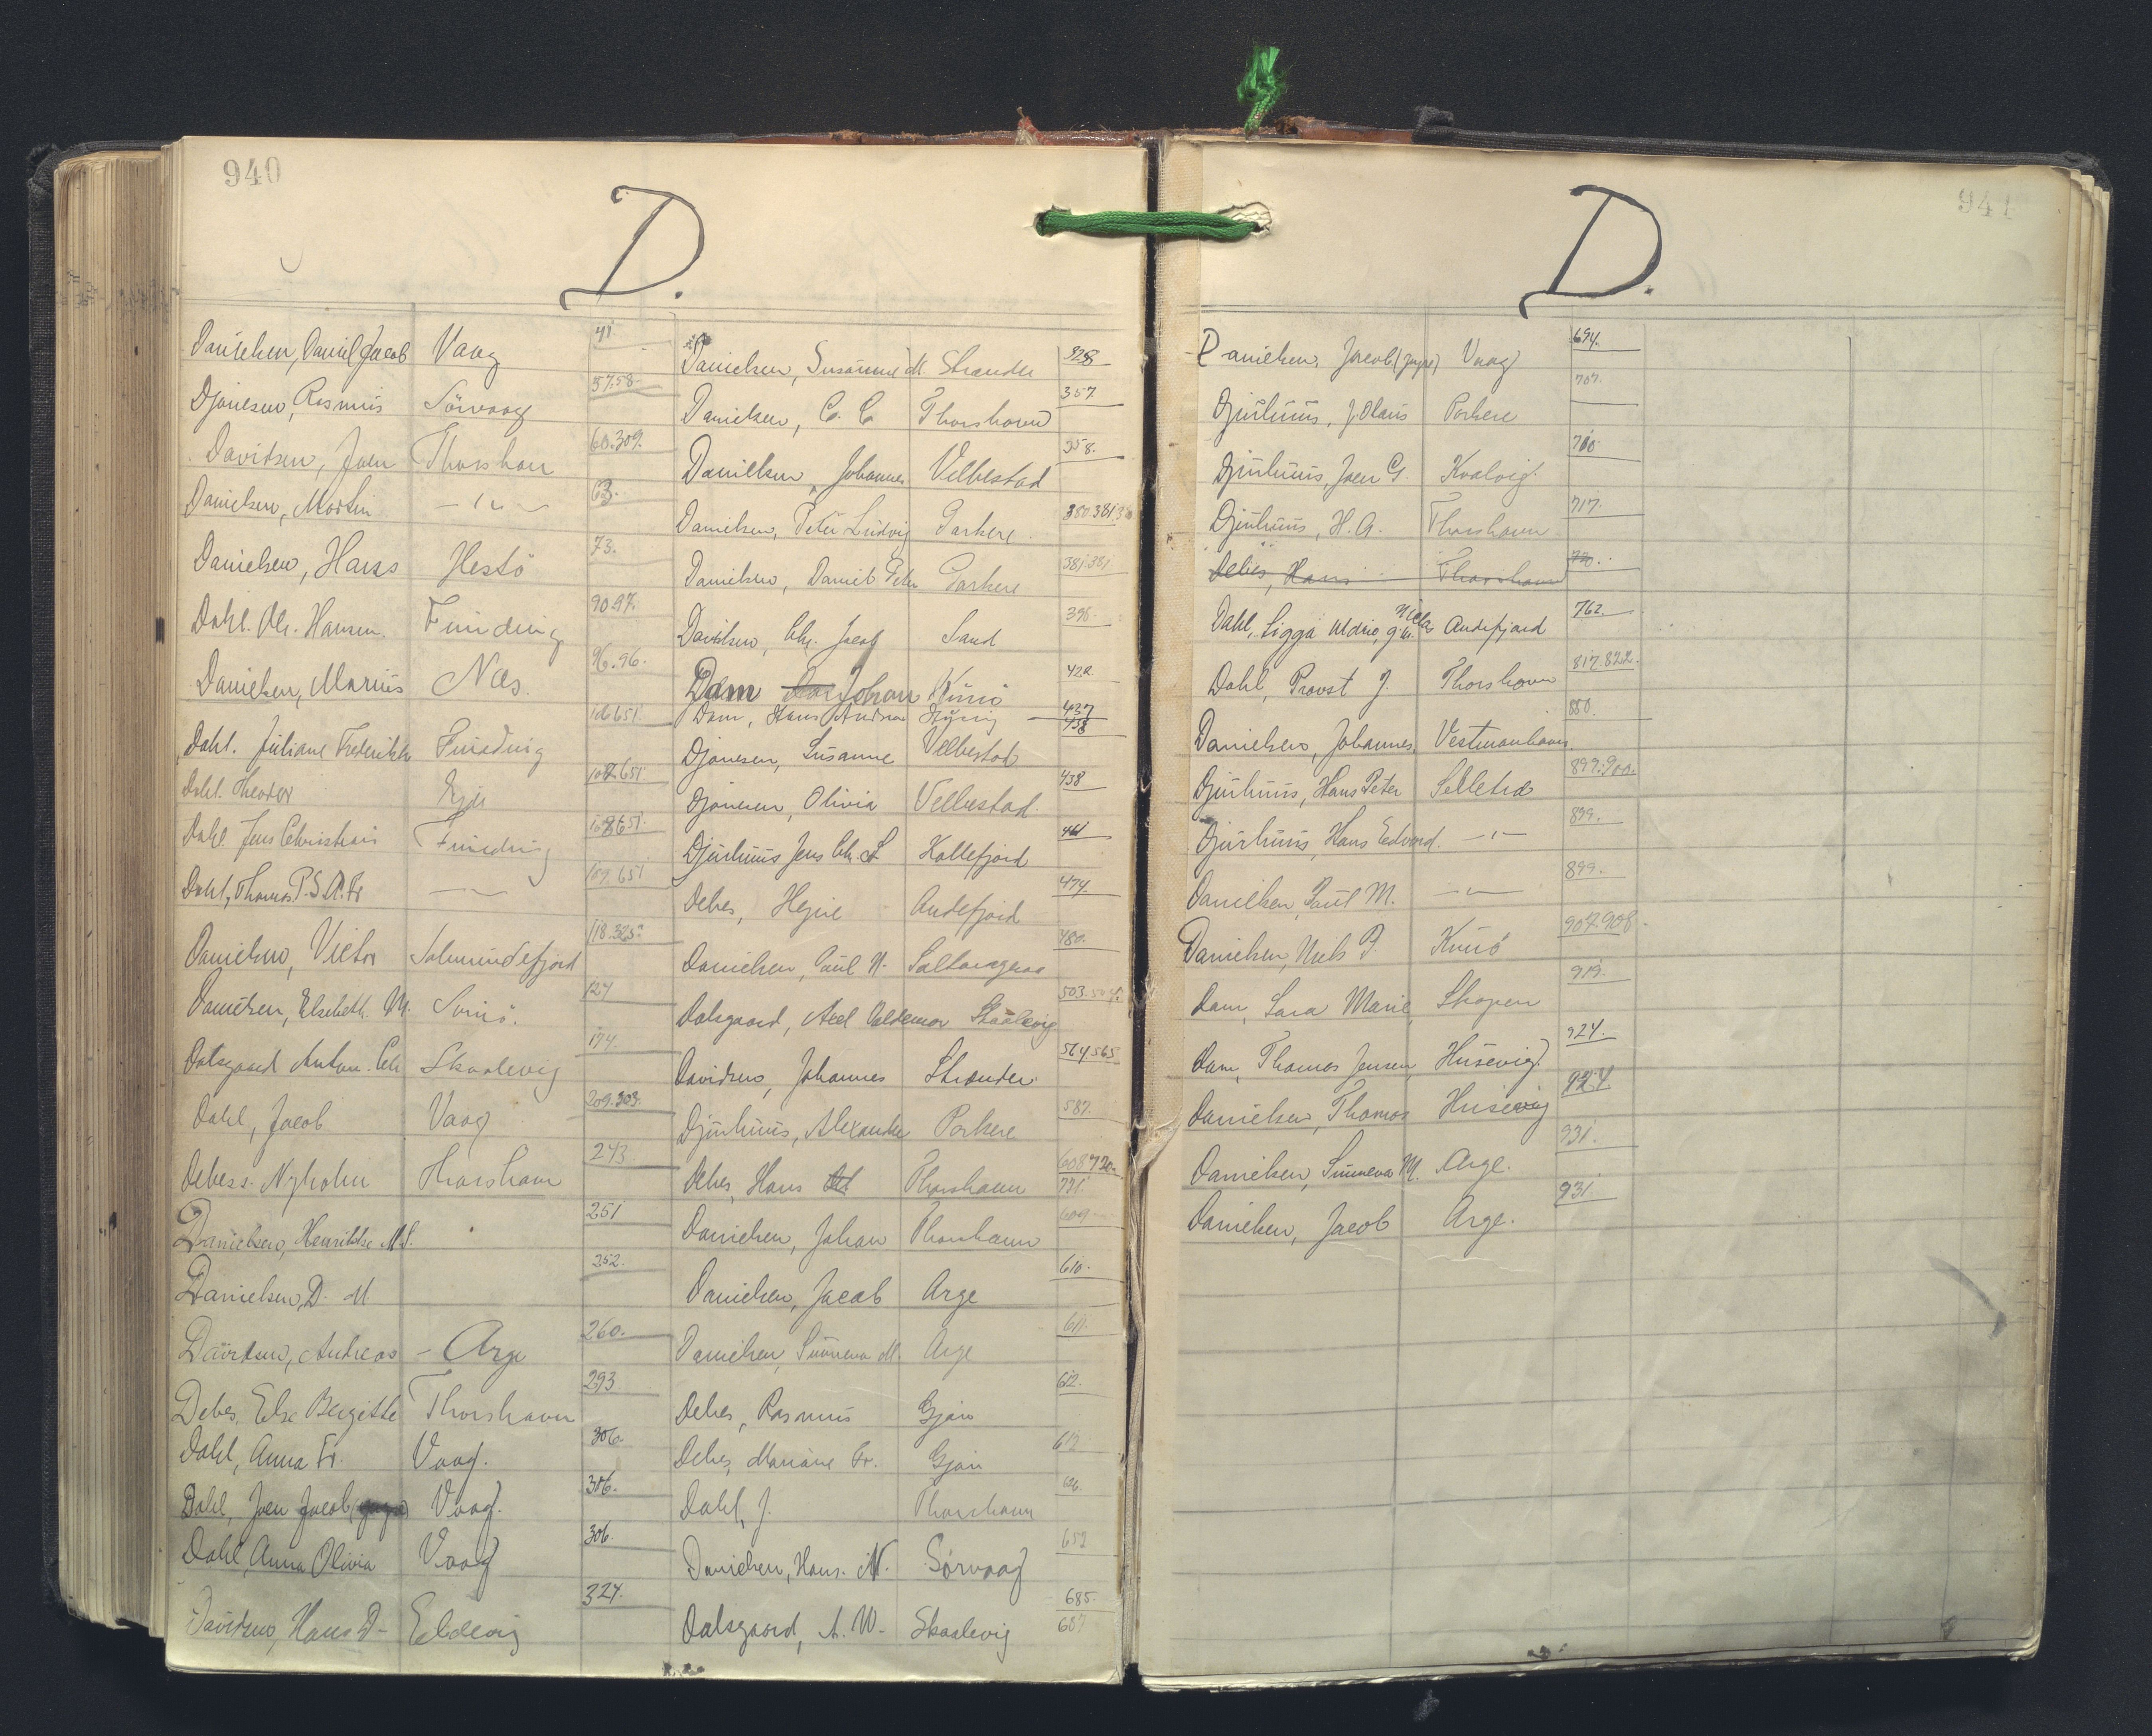 940
D.
Danielsen, Daniel Jacob Vaag 41
Djonesen, Rasmus Sörvaag 57.58.
Davidsen, Joen Thorshavn 60.309.
Danielsen, Martin 63.
Danielsen, Hans Hestö 73.
Dahl. Ole. Hansen. Funding 90.97.
Danielsen, Marius Næs. 96.96.
Dahl. Juliane Frederikke Funding 106.651.
Dahl. Theodor Ejde 107.651
Dahl. Jens Christian Funding 108.651.
Dahl, Thomas P.S.A. Fr 109.651
Danielsen, Victor Salmundefjord 118.325.
Danielsen, Elsebeth. M. Svinö. 124
Dalsgaard Anton. Chr Skaalevig 174.
Dahl, Jacob Vaag 209.303.
Debess. Nyholm Thorshavn 243.
Danielsen, Henrikke M.S. 251
Danielsen, D. M 252.
Davidsen, Andreas - Arge 260.
Debes, Else Bergitte Thorshavn 293.
Dahl, Anna Fr. Vaag. 306.
Dahl, Joen Jacob Vaag. 306.
Dahl, Anna Olivia Vaag 306.
Davidsen, Hans D- Eldevig 324.
Danielsen, Susanne M. Strander 328
Danielsen, C. C Thorshavn 357.
Danielsen, Johannes Velbestad 358.
Danielsen, Peter Ludvig Porkere. 380.381
Danielsen, Daniel Peter Porkere 381.381
Davidsen, Chr. Jacob Sand 396.
Dam Johan Kunö 422
Dam, Hans Andreas 437
Djonesen, Susanne Velbestad 438
Djonesen, Olivia Velbestad. 438
Djurhuus Jens Chr. S Kollefjord 461
Debes, Hejne Andefjord 474.
Danielsen, Poul N. Saltangeraa 480.
Dalsgaard, Axel Valdemar Skaalevig 503.504.
Davidsen, Johannes Strander. 564.565
Djurhuus, Alexander Porkere 587.
Debes, Hans Thorshavn 608 720. 721.
Danielsen, Johan Thorshavn 609
Danielsen, Jacob Arge 610.
Danielsen, Sunneva M. Arge 611.
Debes, Rasmus Gjov 612.
Debes, Mariane Fr. Gjov 612
Dahl, J. Thorshavn
Danielsen, Hans. N. Sörvaag 652
Dalsgaard, A. W. Skaalevig 685. 687
941
D.
Danielsen, Jacob (yngre) Vaag 694.
Djurhuus, J. Olaus Porkere 707.
Djurhuus, Joen G. Kvalvig. 710
Djurhuus, H. A. Thorshavn 717.
Debes, Hans Thorshavn 720.
Dahl, Sigga Maria, g.m. Niels Andefjord 762.
Dahl, Provst J. Thorshavn 817.822.
Danielsen, Johannes Vestmanhavn. 880.
Djurhuus, Hans Peter Selletræ 899.900.
Djurhuus, Hans Edvard. 899.
Danielsen, Poul M. 899.
Danielsen, Niels P. Kunö 907.908.
Dam, Sara Marie Skopen 919.
Dam, Thomas Jensen Husevig. 924.
Danielsen, Thomas Husevig 924
Danielsen, Sunneva M. Arge. 931.
Danielsen, Jacob Arge. 931.